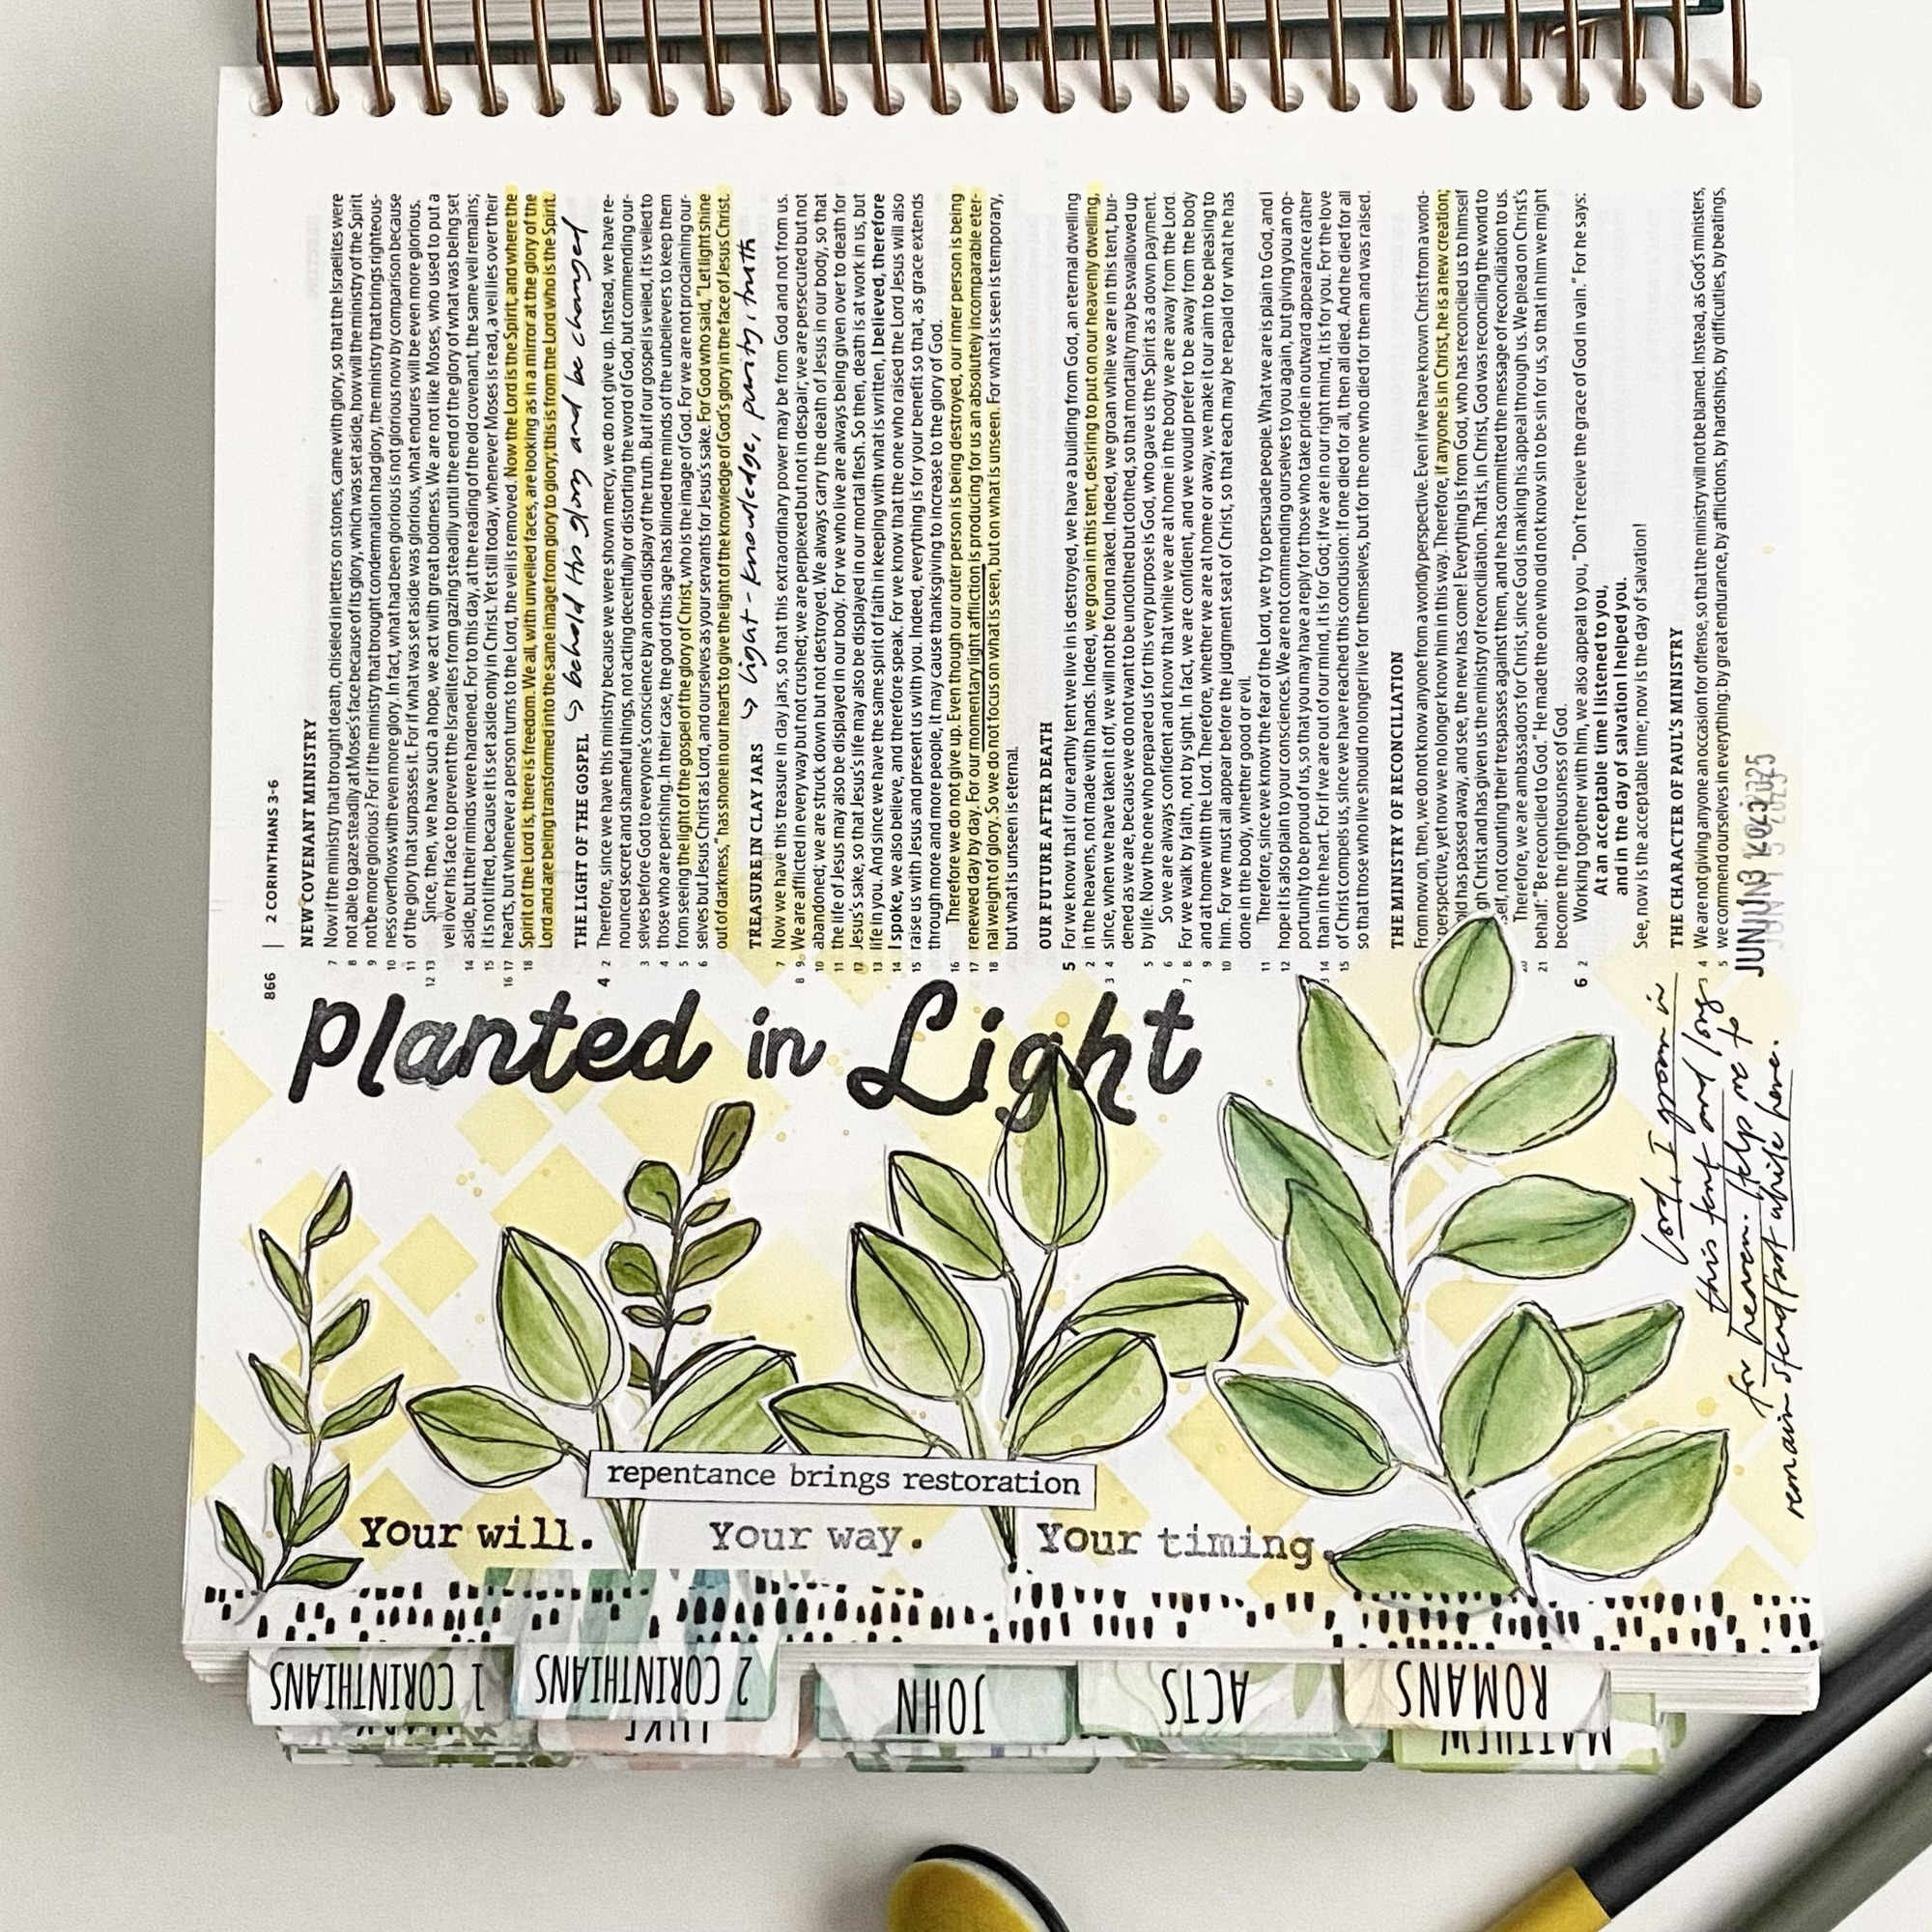 866 | 2 CORINTHIANS 3-6
NEW COVENANT MINISTRY
7 Now if the ministry that brought death, chiseled in letters on stones, came with glory, so that the Israelites were
8 not able to gaze steadily at Moses's face because of its glory, which was set aside, how will the ministry of the Spirit
9 not be more glorious? For if the ministry that brought condemnation had glory, the ministry that brings righteous-
10 ness overflows with even more glory. In fact, what had been glorious is not glorious now by comparison because
11 of the glory that surpasses it. For if what was set aside was glorious, what endures will be even more glorious.
12 13 Since, then, we have such a hope, we act with great boldness. We are not like Moses, who used to put a
veil over his face to prevent the Israelites from gazing steadily until the end of the glory of what was being set
14 aside, but their minds were hardened. For to this day, at the reading of the old covenant, the same veil remains;
15 it is not lifted, because it is set aside only in Christ. Yet still today, whenever Moses is read, a veil lies over their
16 17 hearts, but whenever a person turns to the Lord, the veil is removed. Now the Lord is the Spirit, and where the
18 Spirit of the Lord is, there is freedom. We all, with unveiled faces, are looking as in a mirror at the glory of the
Lord and are being transformed into the same image from glory to glory; this is from the Lord who is the Spirit.
THE LIGHT OF THE GOSPEL → behold His glory and be changed
4 2 Therefore, since we have this ministry because we were shown mercy, we do not give up. Instead, we have re-
nounced secret and shameful things, not acting deceitfully or distorting the word of God, but commending our-
3 selves before God to everyone's conscience by an open display of the truth. But if our gospel is veiled, it is veiled to
4 those who are perishing. In their case, the god of this age has blinded the minds of the unbelievers to keep them
5 from seeing the light of the gospel of the glory of Christ, who is the image of God. For we are not proclaiming our-
6 selves but Jesus Christ as Lord, and ourselves as your servants for Jesus's sake. For God who said, "Let light shine
out of darkness," has shone in our hearts to give the light of the knowledge of God's glory in the face of Jesus Christ.
TREASURE IN CLAY JARS → light - knowledge, purity, truth
7 Now we have this treasure in clay jars, so that this extraordinary power may be from God and not from us.
8 9 We are afflicted in every way but not crushed; we are perplexed but not in despair; we are persecuted but not
10 abandoned; we are struck down but not destroyed. We always carry the death of Jesus in our body, so that
11 the life of Jesus may also be displayed in our body. For we who live are always being given over to death for
12 Jesus's sake, so that Jesus's life may also be displayed in our mortal flesh. So then, death is at work in us, but
13 life in you. And since we have the same spirit of faith in keeping with what is written, I believed, therefore
14 I spoke, we also believe, and therefore speak. For we know that the one who raised the Lord Jesus will also
15 raise us with Jesus and present us with you. Indeed, everything is for your benefit so that, as grace extends
through more and more people, it may cause thanksgiving to increase to the glory of God.
16 Therefore we do not give up. Even though our outer person is being destroyed, our inner person is being
17 renewed day by day. For our momentary light affliction is producing for us an absolutely incomparable eter-
18 nal weight of glory. So we do not focus on what is seen, but on what is unseen. For what is seen is temporary,
but what is unseen is eternal.
OUR FUTURE AFTER DEATH
5 For we know that if our earthly tent we live in is destroyed, we have a building from God, an eternal dwelling
2 in the heavens, not made with hands. Indeed, we groan in this tent, desiring to put on our heavenly dwelling,
3 4 since, when we have taken it off, we will not be found naked. Indeed, we groan while we are in this tent, bur-
dened as we are, because we do not want to be unclothed but clothed, so that mortality may be swallowed up
5 by life. Now the one who prepared us for this very purpose is God, who gave us the Spirit as a down payment.
6 So we are always confident and know that while we are at home in the body we are away from the Lord.
7 8 For we walk by faith, not by sight. In fact, we are confident, and we would prefer to be away from the body
9 and at home with the Lord. Therefore, whether we are at home or away, we make it our aim to be pleasing to
10 him. For we must all appear before the judgment seat of Christ, so that each may be repaid for what he has
done in the body, whether good or evil.
11 Therefore, since we know the fear of the Lord, we try to persuade people. What we are is plain to God, and I
12 hope it is also plain to your consciences. We are not commending ourselves to you again, but giving you an op-
portunity to be proud of us, so that you may have a reply for those who take pride in outward appearance rather
13 14 than in the heart. For if we are out of our mind, it is for God; if we are in our right mind, it is for you. For the love
15 of Christ compels us, since we have reached this conclusion: If one died for all, then all died. And he died for all
so that those who live should no longer live for themselves, but for the one who died for them and was raised.
THE MINISTRY OF RECONCILIATION
From now on, then, we do not know anyone from a worldly perspective. Even if we have known Christ from a world-
perspective, yet now we no longer know him in this way. Therefore, if anyone is in Christ, he is a new creation;
old has passed away, and see, the new has come! Everything is from God, who has reconciled us to himself
Christ and has given us the ministry of reconciliation. That is, in Christ, God was reconciling the world to
self, not counting their trespasses against them, and he has committed the message of reconciliation to us.
20 Therefore, we are ambassadors for Christ, since God is making his appeal through us. We plead on Christ's
21 behalf: "Be reconciled to God." He made the one who did not know sin to be sin for us, so that in him we might
become the righteousness of God.
6 2 Working together with him, we also appeal to you, "Don't receive the grace of God in vain." For he says:
At an acceptable time I listened to you,
and in the day of salvation I helped you.
See, now is the acceptable time; now is the day of salvation!
THE CHARACTER OF PAUL'S MINISTRY
3 4 We are not giving anyone an occasion for offense, so that the ministry will not be blamed. Instead, as God's ministers,
5 we commend ourselves in everything: by great endurance, by afflictions, by hardships, by difficulties, by beatings,
Planted in Light
Lord, I groan in
this tent and long
for heaven. Help me to
remain steadfast while here.
repentance brings restoration
Your will. Your way. Your timing.
1 CORINTHIANS
2 CORINTHIANS
JOHN
ACTS
ROMANS
LUKE
MATTHEW